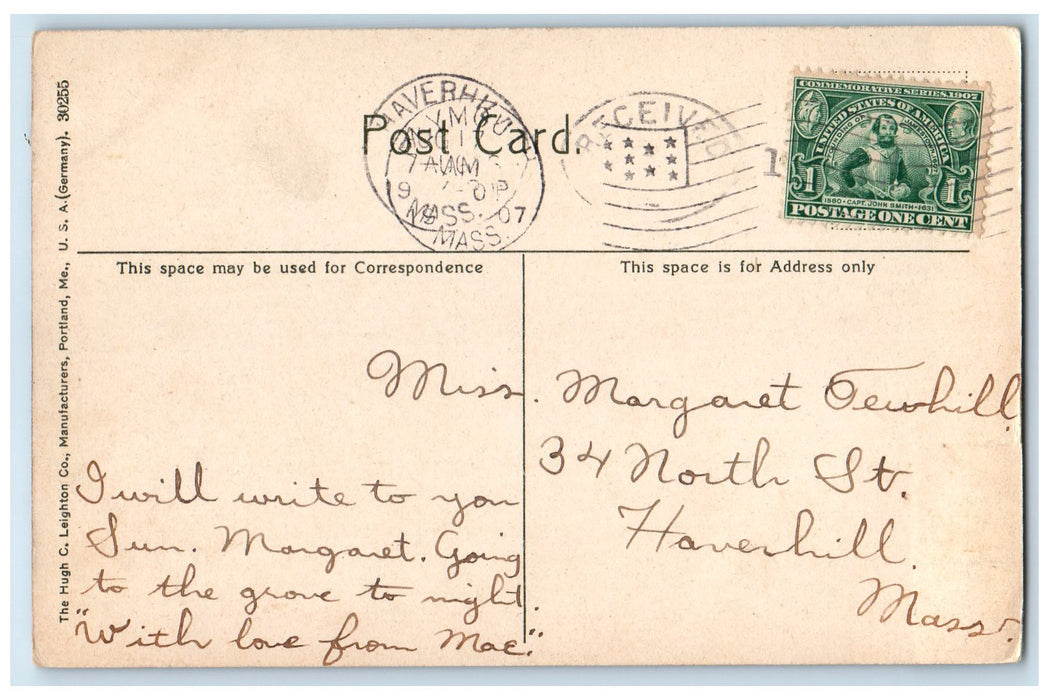 Post Card.
HAVERHILL
MASS.
MASS.
RECEIVED
COMMEMORATIVE SERIES, 1907
UNITED STATES OF AMERICA
1580 • CAPT. JOHN SMITH • 1631
1 1
POSTAGE ONE CENT
The Hugh C. Leighton Co., Manufacturers, Portland, Me., U. S. A. (Germany). 30255
This space may be used for Correspondence
This space is for Address only
Miss. Margaret Tewhill
34 North St.
Haverhill
Mass.
I will write to you
Sun. Margaret. Going
to the grove to night.
"With love from Mae."